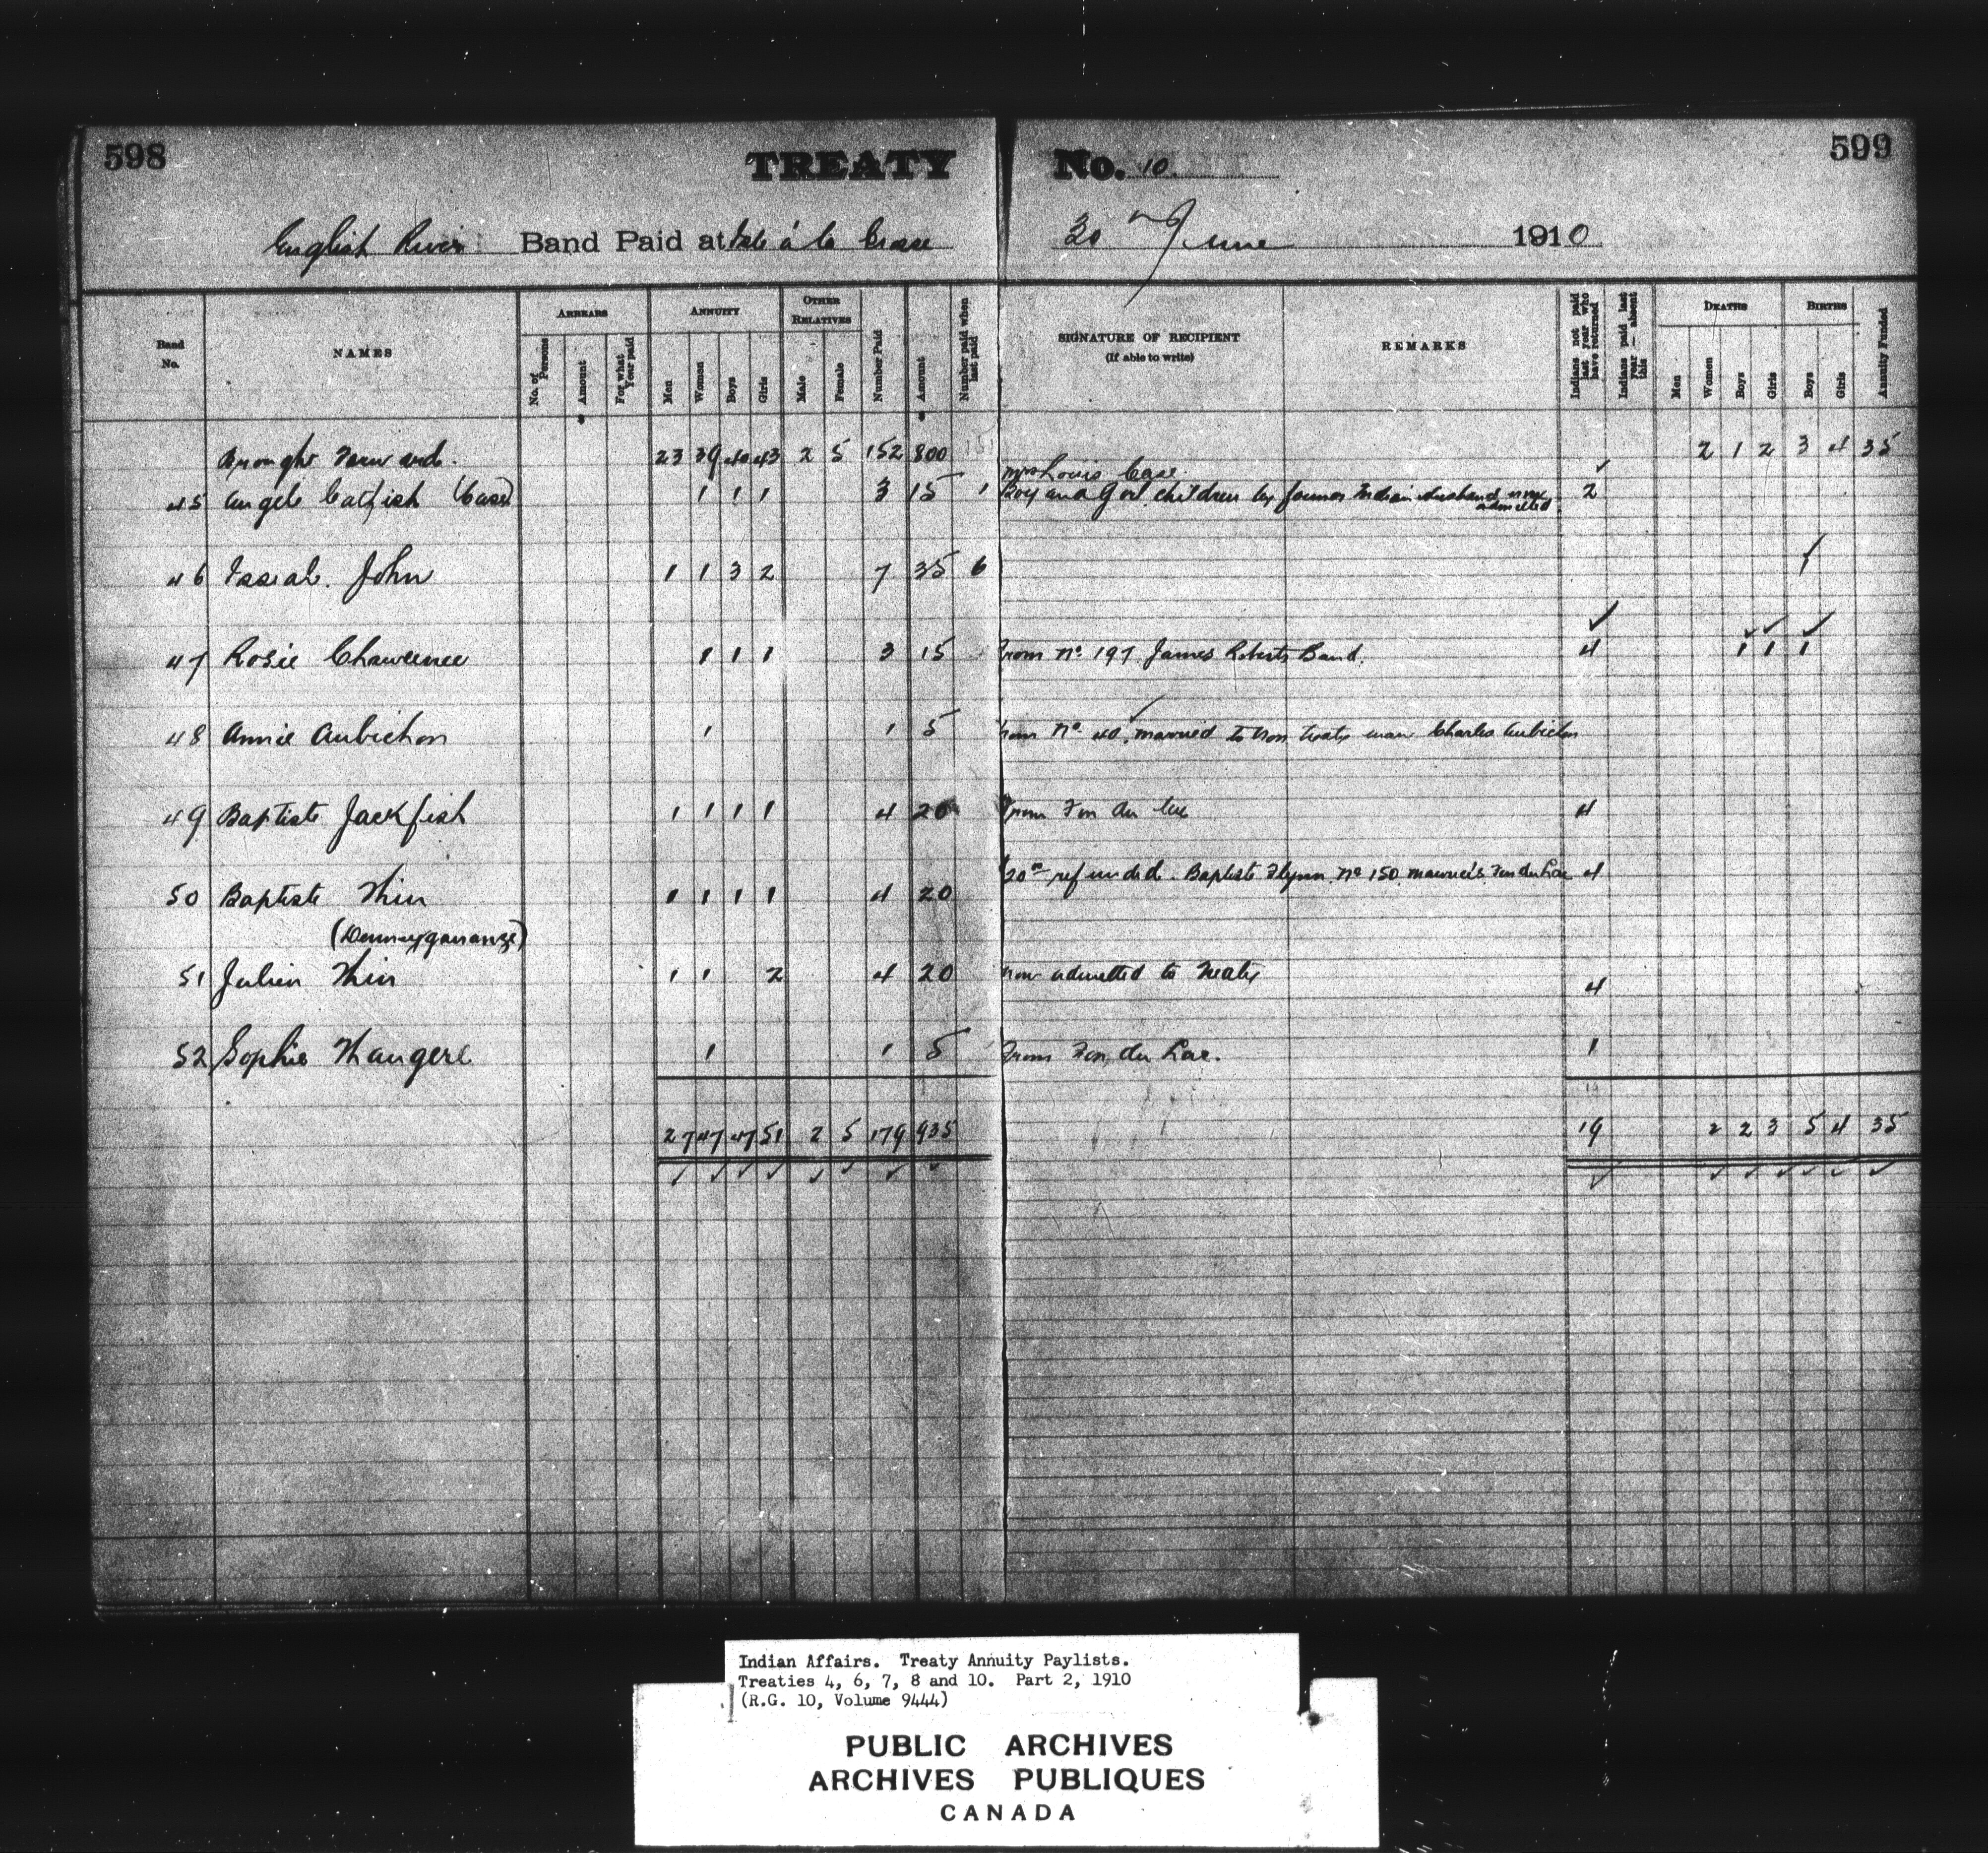 598
TREATY No. 10.
599
English River Band Paid at Isle á la Crosse 30 June 1910
Band No.
NAMES
ARREARS
No. of Persons
Amount
For what Year paid
ANNUITY
Men
Women
Boys
Girls
OTHER RELATIVES
Male
Female
Number Paid
Amount
Number paid when last paid
SIGNATURE OF RECIPIENT
(If able to write)
REMARKS
Indians not paid last year who have returned
Indians paid last year — absent this
DEATHS
Men
Women
Boys
Girls
BIRTHS
Boys
Girls
Annuity Funded
Brought Forward. 23 39 40 43 2 5 152 800 2 1 2 3 4 35
Mrs Louis Case.
45 Angele Catfish (Case) 1 1 1 3 15 1 Boy and Girl children by former Indian husband now admitted. 2
46 John 1 1 3 2 7 35 6 1
47 Rosie Chaweenee 1 1 1 3 15 From No. 197 James Roberts Band. 4 1 1 1
48 Annie Aubichon 1 1 5 from No. 40. married to Non treaty man Charles Aubichon
49 Baptiste Jackfish 1 1 1 1 4 20 From Fon du Lac 4
50 Baptiste Thin 1 1 1 1 4 20 20 refunded. Baptiste No 150 Maurice's Fon du Lac 4
51 Julien Thin 1 1 2 4 20 now admitted to Treaty 4
52 Sophie 1 1 5 From Fon du Lac. 1
19
27 47 47 51 2 5 179 935 19 2 2 3 5 4 35
Indian Affairs. Treaty Annuity Paylists.
Treaties 4, 6, 7, 8 and 10. Part 2, 1910
(R.G. 10, Volume 9444)
PUBLIC ARCHIVES
ARCHIVES PUBLIQUES
CANADA